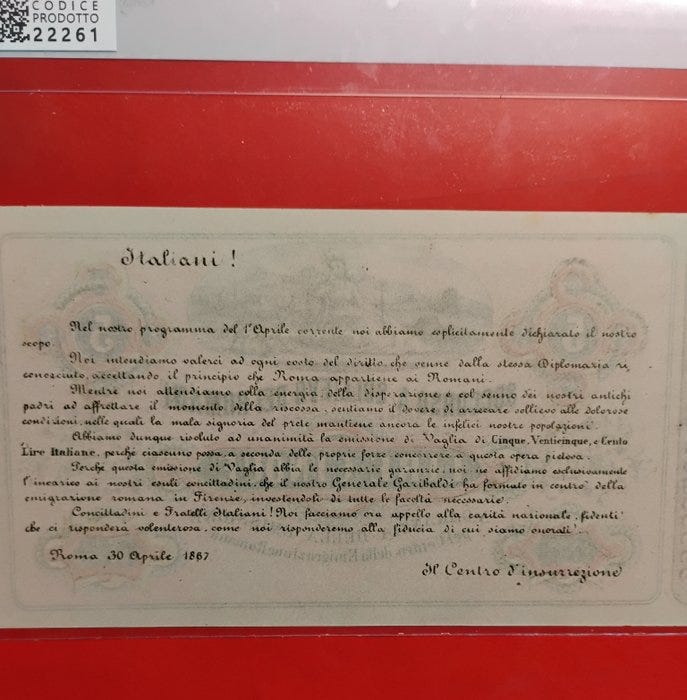 CODICE
PRODOTTO
22261
Italiani !
Nel nostro programma del 1° Aprile corrente noi abbiamo esplicitamente dichiarato il nostro
scopo.
Noi intendiamo valerci ad ogni costo del diritto, che venne dalla stessa Diplomazia ri,
conosciuto, accettando il principio che Roma appartiene ai Romani.
Mentre noi attendiamo colla energia, della disperazione e col senno dei nostri antichi
padri ad affrettare il momento della riscossa, sentiamo il dovere di arrecare sollievo alle dolorose
condizioni, nelle quali la mala signoria del prete mantiene ancora le infelici nostre popolazioni.
Abbiamo dunque risoluto ad unanimità la emissione di Vaglia di Cinque, Venticinque, e Cento
Lire Italiane, perché ciascuno possa, a seconda delle proprie forze, concorrere a questa opera pietosa.
Perche questa emissione di Vaglia abbia le necessarie garanzie, noi ne affidiamo esclusivamente
l'incarico ai nostri esuli concittadini, che il nostro Generale Garibaldi ha formato in centro della
emigrazione romana in Firenze, investendoli di tutte le facoltà necessarie.
Concittadini e Fratelli Italiani ! Noi facciamo ora appello alla carità nazionale, fidenti
che ci risponderà volenterosa, come noi risponderemo alla fiducia di cui siamo onorati.
Roma 30 Aprile 1867
Il Centro d'insurrezione